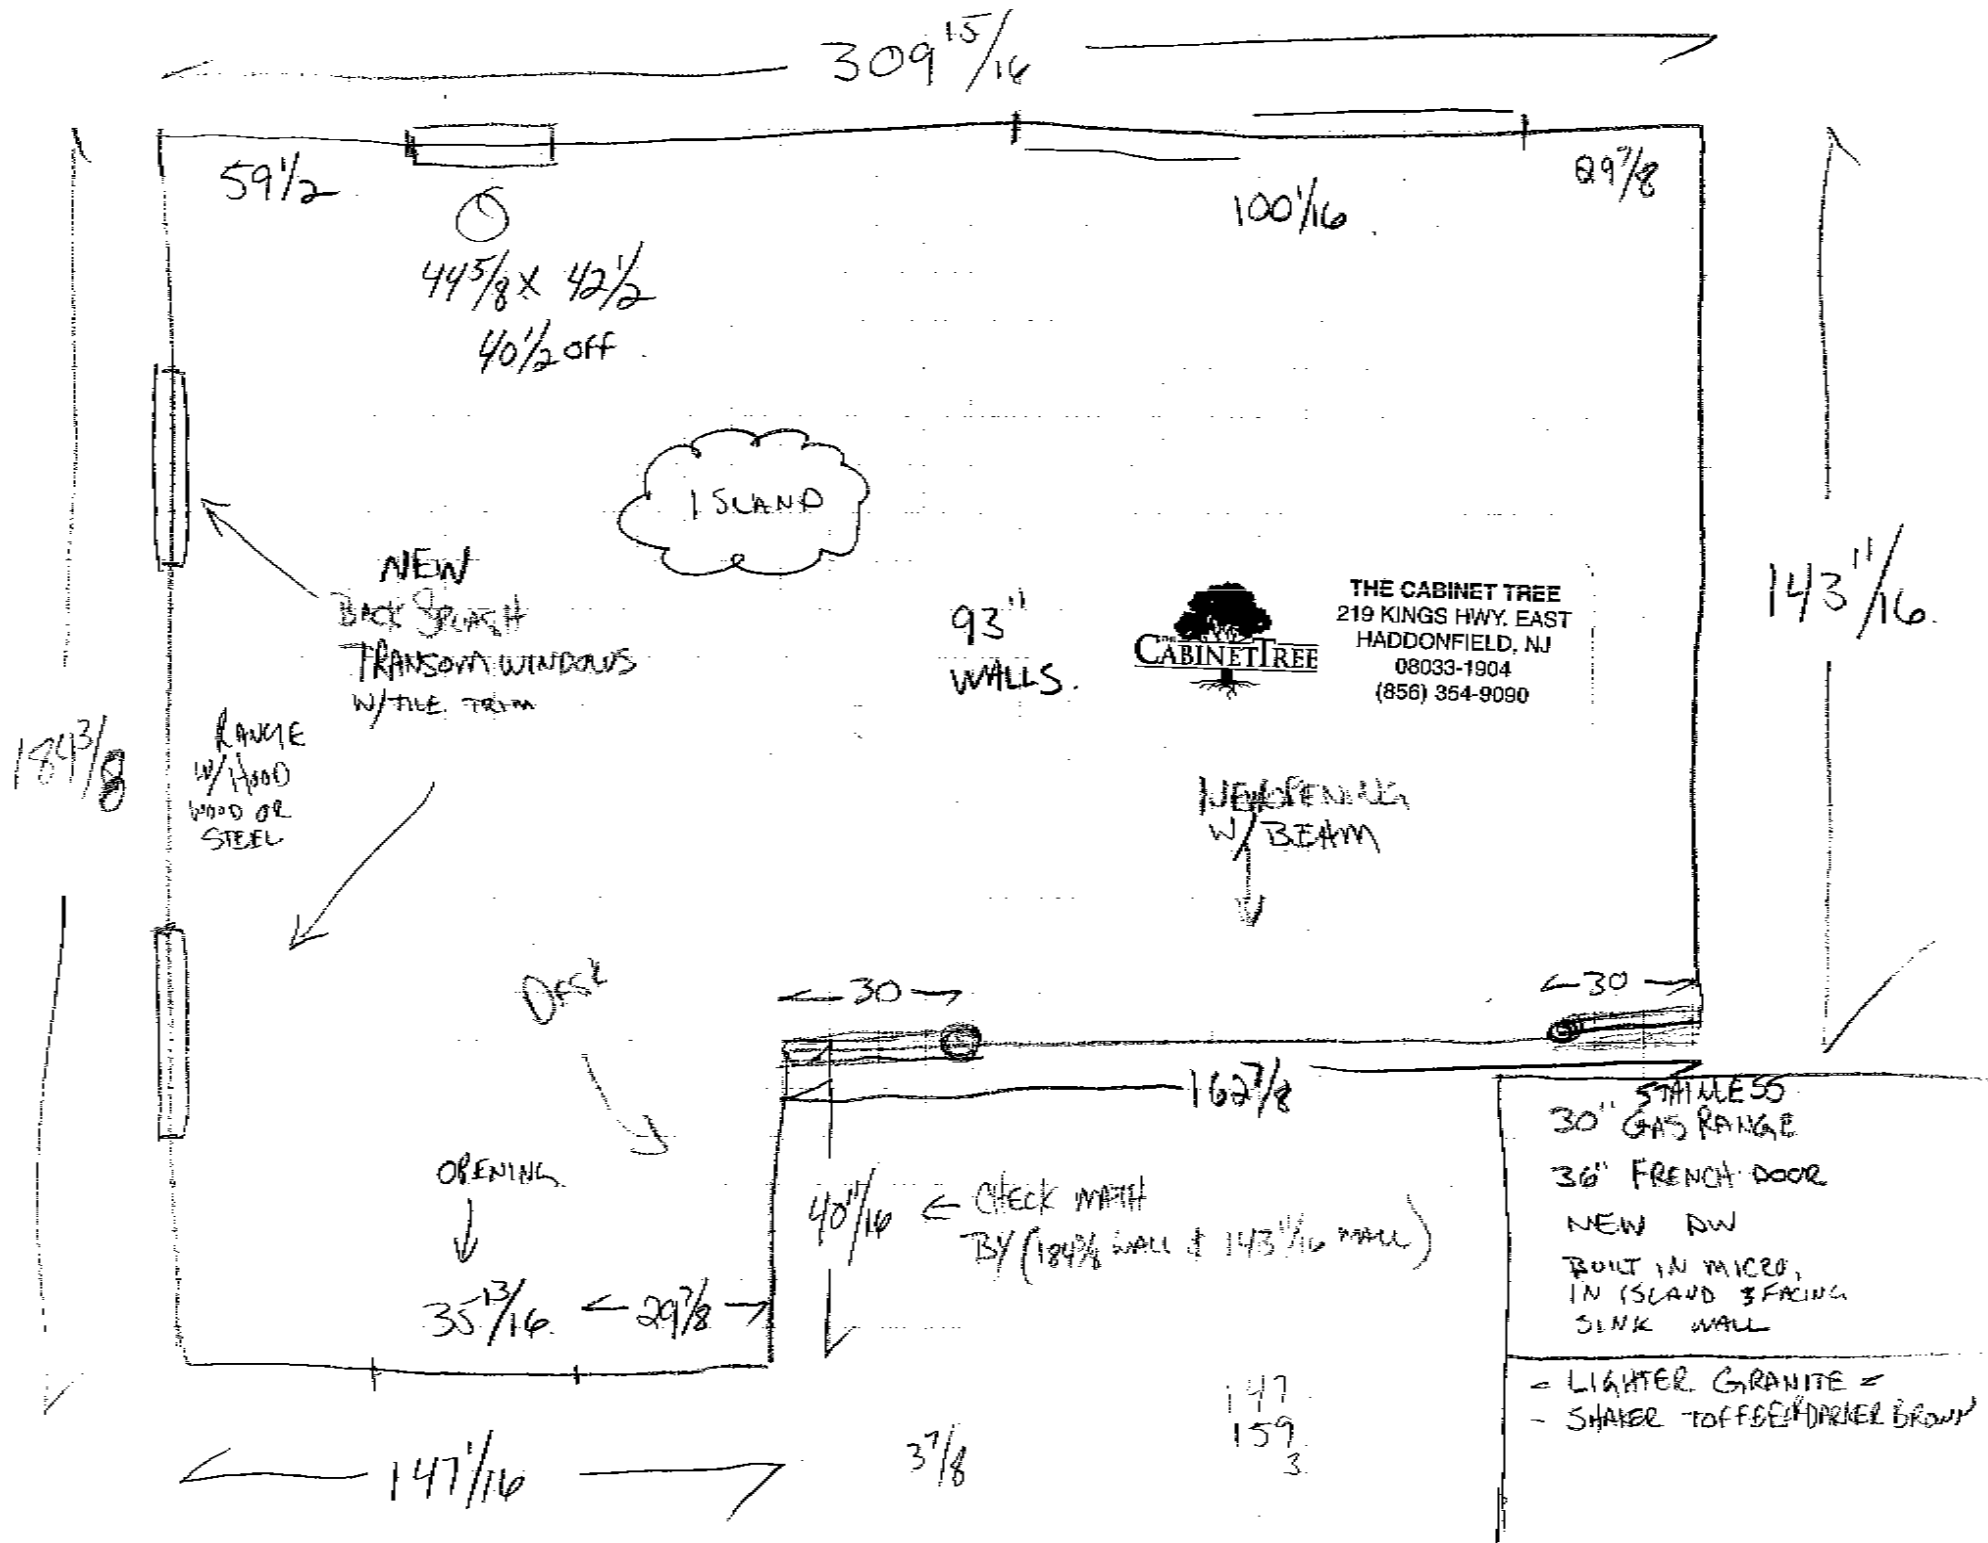 309 15/16
59 1/2
100 1/16
29 7/8
44 5/8 x 42 1/2
40 1/2 OFF
ISLAND
NEW
BACK SPLASH
TRANSOM WINDOWS
W/ TILE TRIM
93"
WALLS.
THE
CABINETTREE
THE CABINET TREE
219 KINGS HWY. EAST
HADDONFIELD, NJ
08033-1904
(856) 354-9090
143 11/16
184 3/8
RANGE
W/ HOOD
WOOD OR
STEEL
NEW OPENING
W/ BEAM
DESK
30
30
162 7/8
OPENING
35 13/16
29 7/8
40 11/16
← CHECK MATH
BY (184 3/8 WALL & 143 11/16 WALL)
STAINLESS
30" GAS RANGE
36" FRENCH DOOR
NEW DW
BUILT IN MICRO,
IN ISLAND & FACING
SINK WALL
- LIGHTER GRANITE -
- SHAKER TOFFEE DARKER BROWN
147 1/16
3 7/8
147
159
3